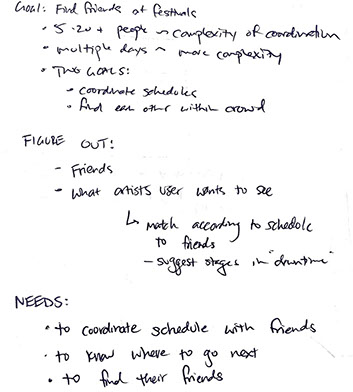 Goal: Find friends at festivals
• 5-20+ people ~ complexity of coordination
• multiple days ~ more complexity
• TWO GOALS:
- coordinate schedules
• find each other within crowd
FIGURE OUT:
- Friends
- What artists user wants to see
↳ match according to schedule
to friends
- suggest stages in "downtime"
NEEDS:
• to coordinate schedule with friends
• to know where to go next
• to find their friends